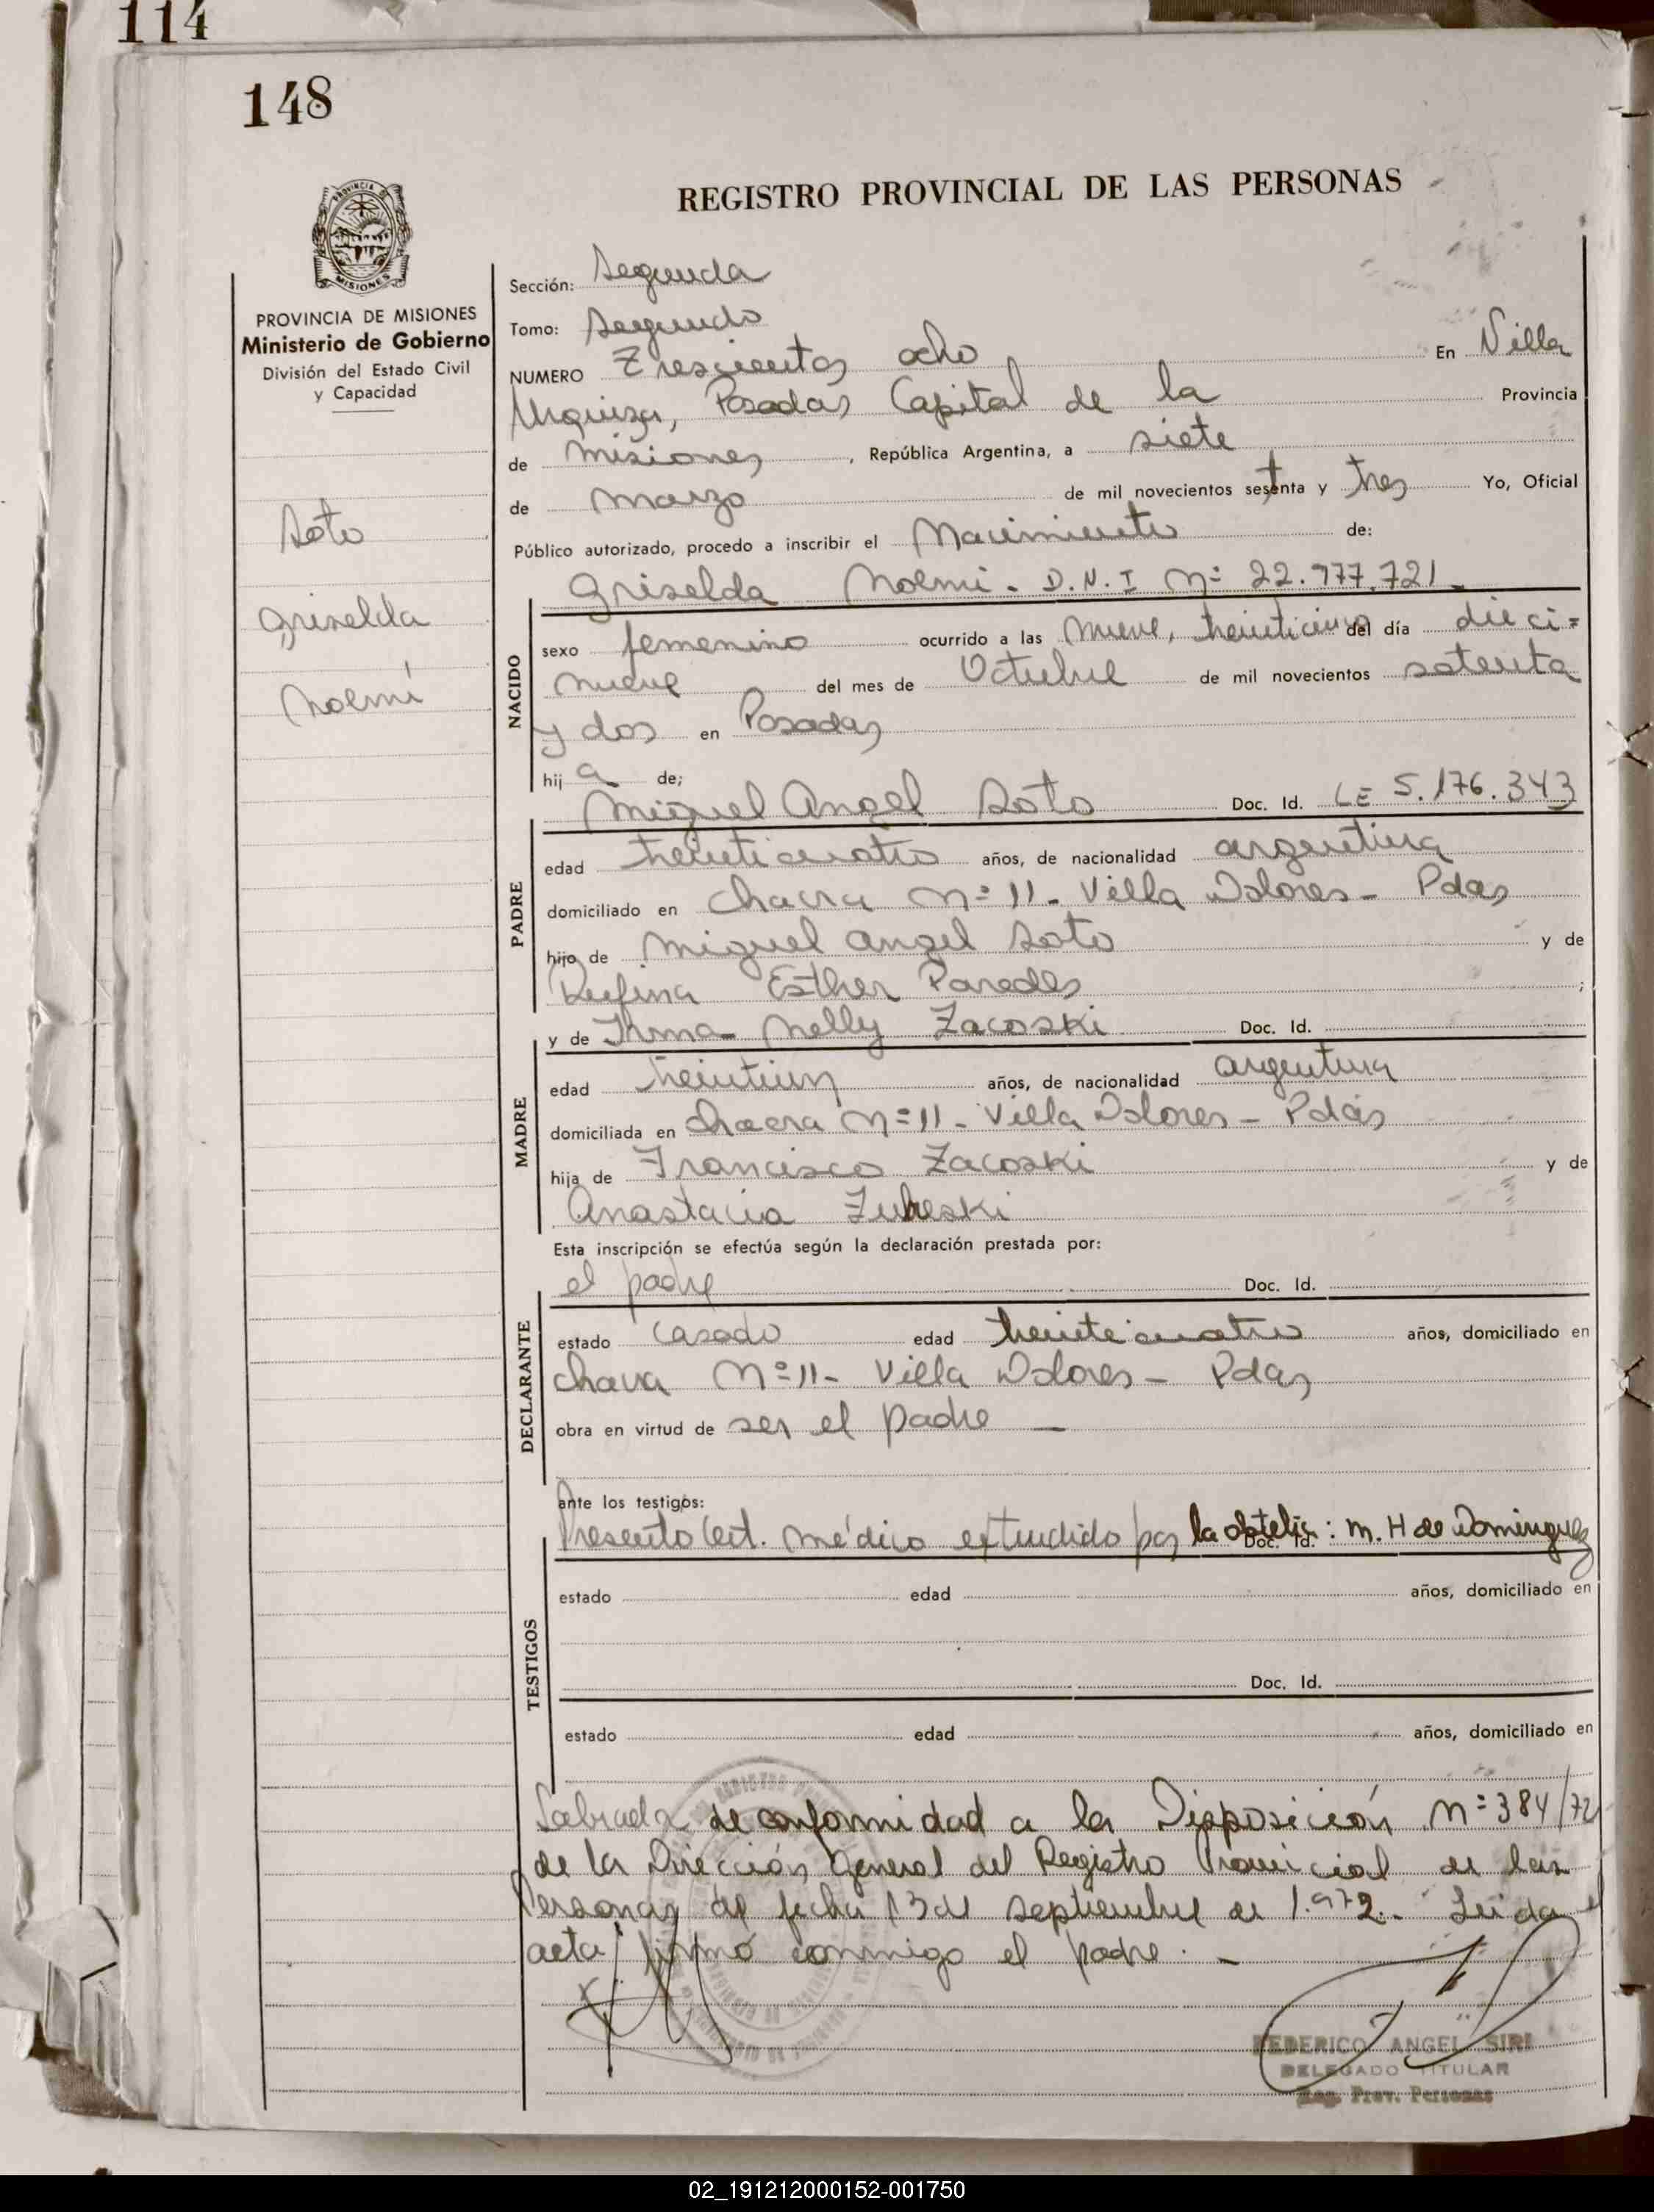 114
148
REGISTRO PROVINCIAL DE LAS PERSONAS
PROVINCIA DE
MISIONES
PROVINCIA DE MISIONES
Ministerio de Gobierno
División del Estado Civil
y Capacidad
Soto
Griselda
Noemí
Sección: Segunda
Tomo: Segundo
NUMERO Trescientos ocho En Villa
Urquiza, Posadas Capital de la Provincia
de Misiones, República Argentina, a siete
de Marzo de mil novecientos setenta y tres Yo, Oficial
Público autorizado, procedo a inscribir el Nacimiento de:
Griselda Noemi. D.N.I Nº 22.977.721
NACIDO
sexo femenino ocurrido a las nueve, veinticinco del día dieci=
nueve del mes de Octubre de mil novecientos setenta
y dos en Posadas
hij a de;
Miguel Angel Soto Doc. Id. LE 5.176.343
PADRE
edad veinticuatro años, de nacionalidad argentina
domiciliado en Chacra Nº 11 - Villa Dolores - Pdas
hijo de Miguel Angel Soto y de
Rufina Esther Paredes ;
y de Irma Nelly Zacoski Doc. Id.
MADRE
edad veintiun años, de nacionalidad argentina
domiciliada en Chacra Nº 11 - Villa Dolores - Pdas
hija de Francisco Zacoski y de
Anastacia
Esta inscripción se efectúa según la declaración prestada por:
el padre Doc. Id.
DECLARANTE
estado casado edad veinticuatro años, domiciliado en
Chacra Nº 11 - Villa Dolores - Pdas
obra en virtud de ser el padre —
ante los testigos:
Presento Cert. médico extendido por la : M. H de Dominguez Doc. Id.
TESTIGOS
estado edad años, domiciliado en
Doc. Id.
estado edad años, domiciliado en
Labrada de conformidad a la Disposición Nº 384/72
de la Dirección General del Registro Provincial de las
Personas de fecha 13 de septiembre de 1.972.- Leida el
acta firmó conmigo el padre. -
FEDERICO ANGEL SIRI
DELEGADO TITULAR
Reg. Prov. Personas
02_191212000152-001750